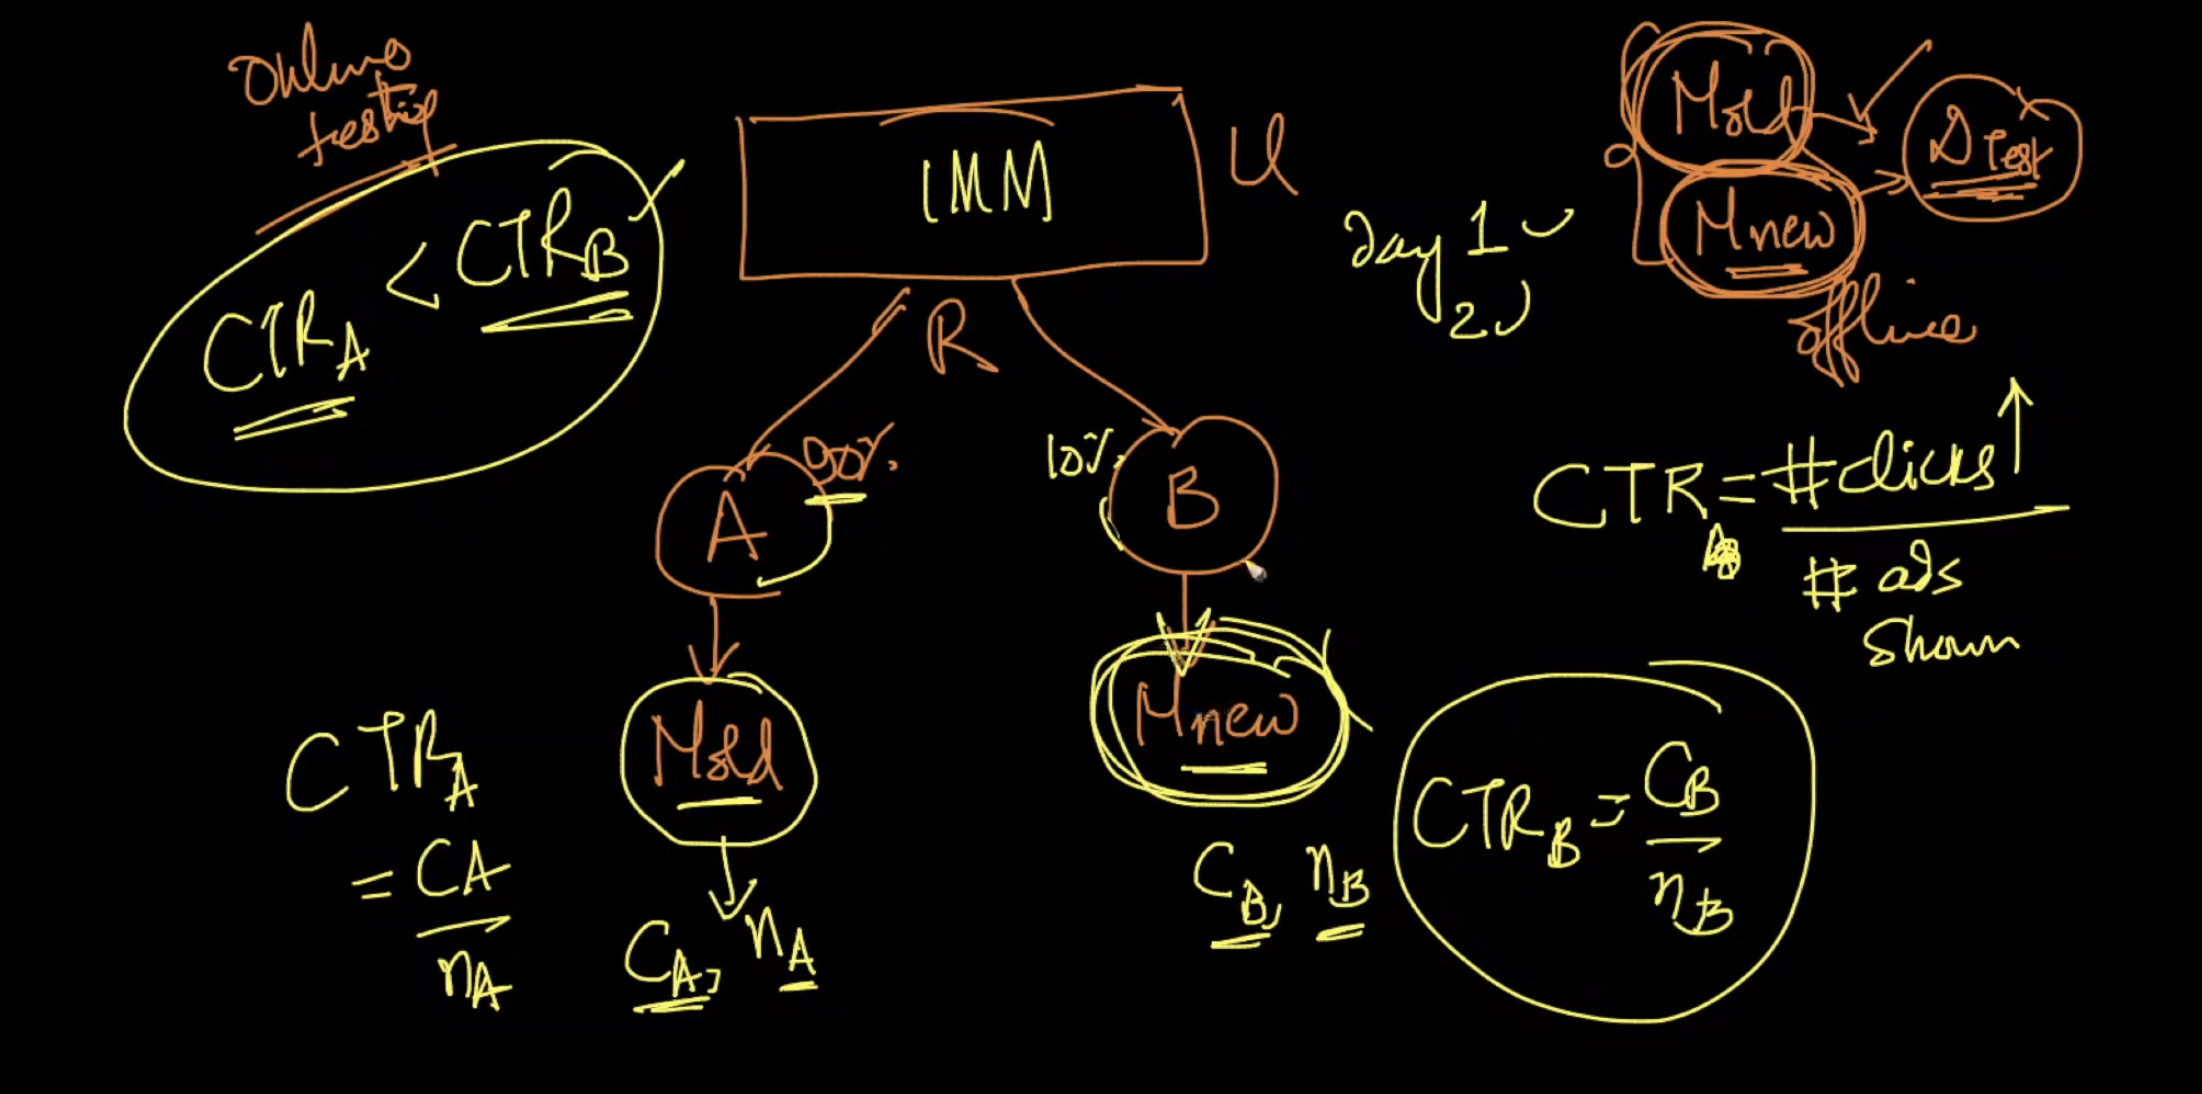 Online
testing
CTRA < CTRB
1MM
U
R
A
90%.
10%.
B
Mold
Mnew
CTRA
= CA
nA
CA, nA
CB, nB
CTRB = CB
nB
Day 1
2
Mold
Mnew
DTest
offline
CTR = #clicks
# ads
shown